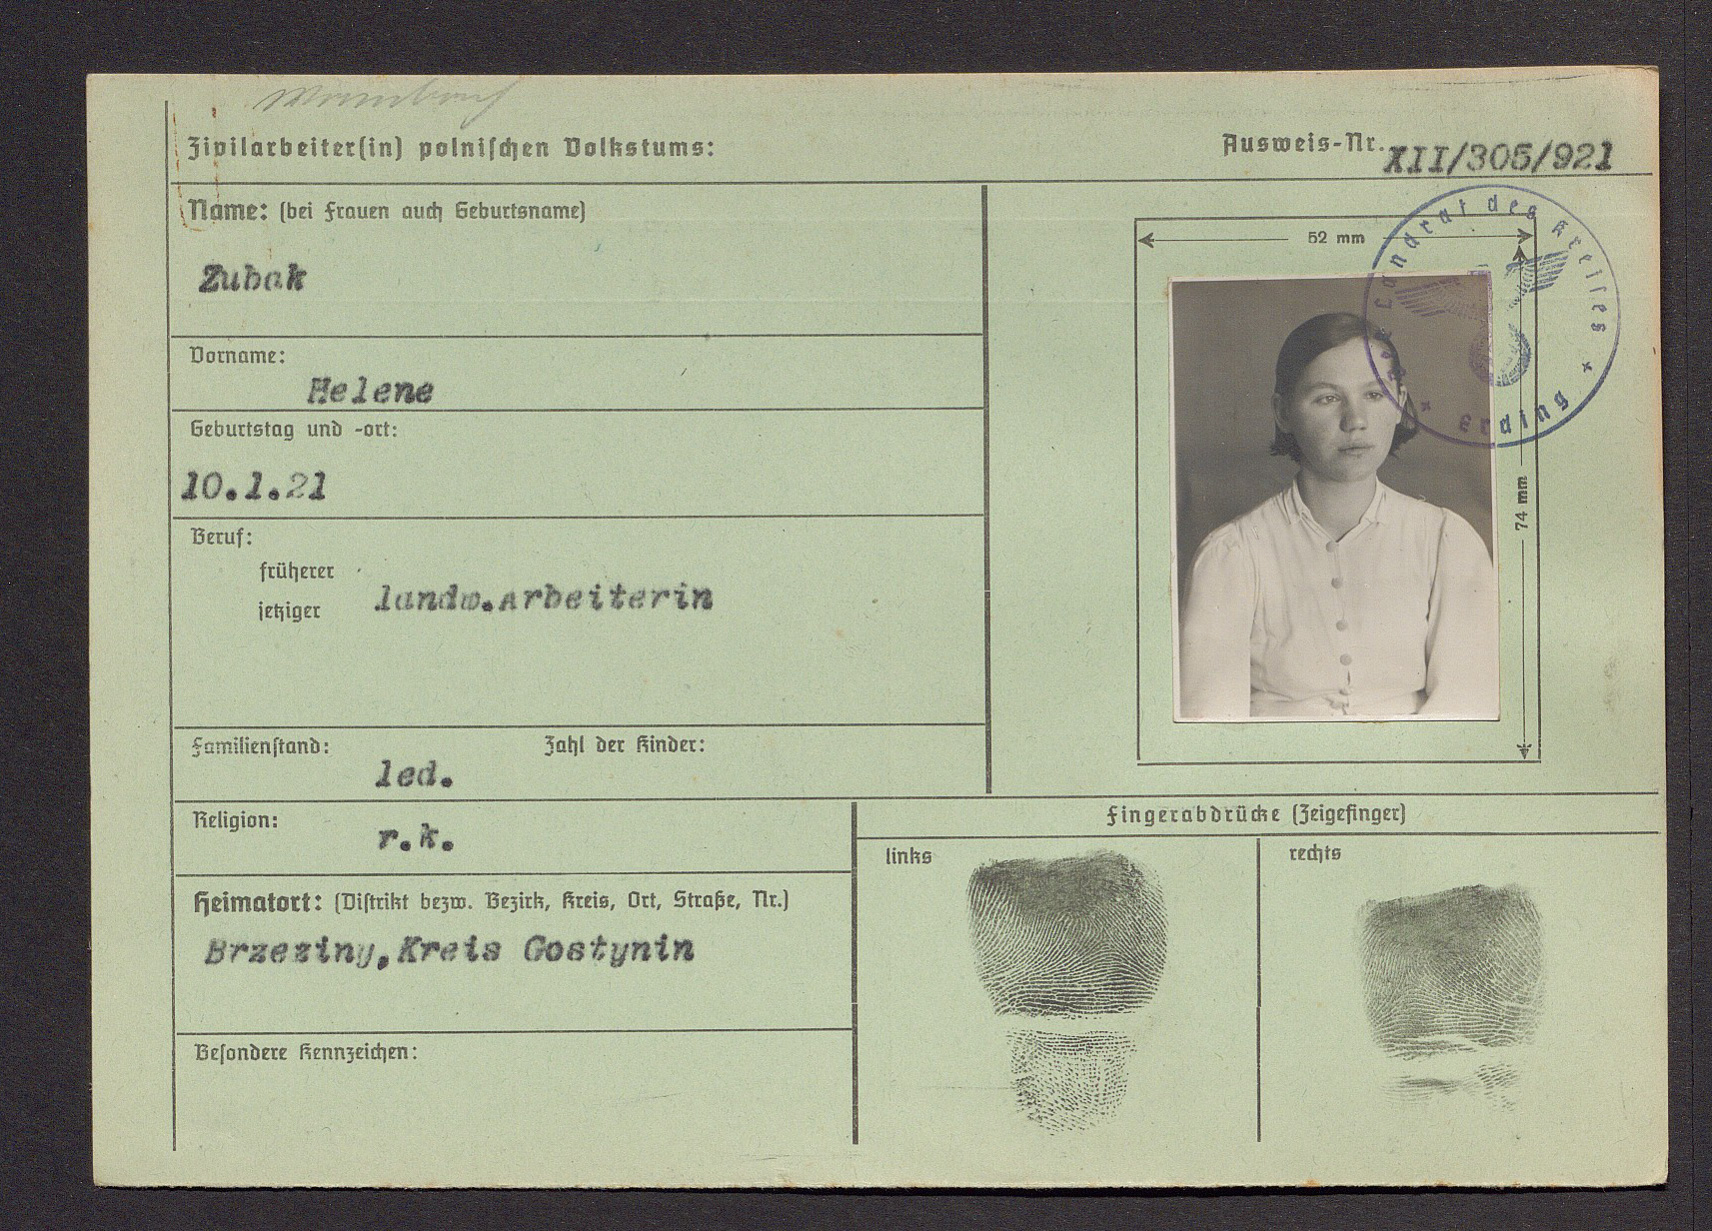 Zivilarbeiter(in) polnischen Volkstums:
Ausweis-Nr. XII/305/921
Name: (bei Frauen auch Geburtsname)
Zubak
Vorname:
Helene
Geburtstag und -ort:
10.1.21
Beruf:
früherer
jetziger
landw.Arbeiterin
Familienstand: Zahl der Kinder:
led.
Religion:
r.k.
Heimatort: (Distrikt bezw. Bezirk, Kreis, Ort, Straße, Nr.)
Brzeziny,Kreis Gostynin
Besondere Kennzeichen:
52 mm
74 mm
Der Landrat des Kreises
* Erding *
Fingerabdrücke (Zeigefinger)
links
rechts